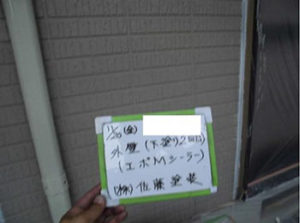 11/25(金)
外壁(下塗り2回目)
(エポMシーラー)
(株)佐藤塗装